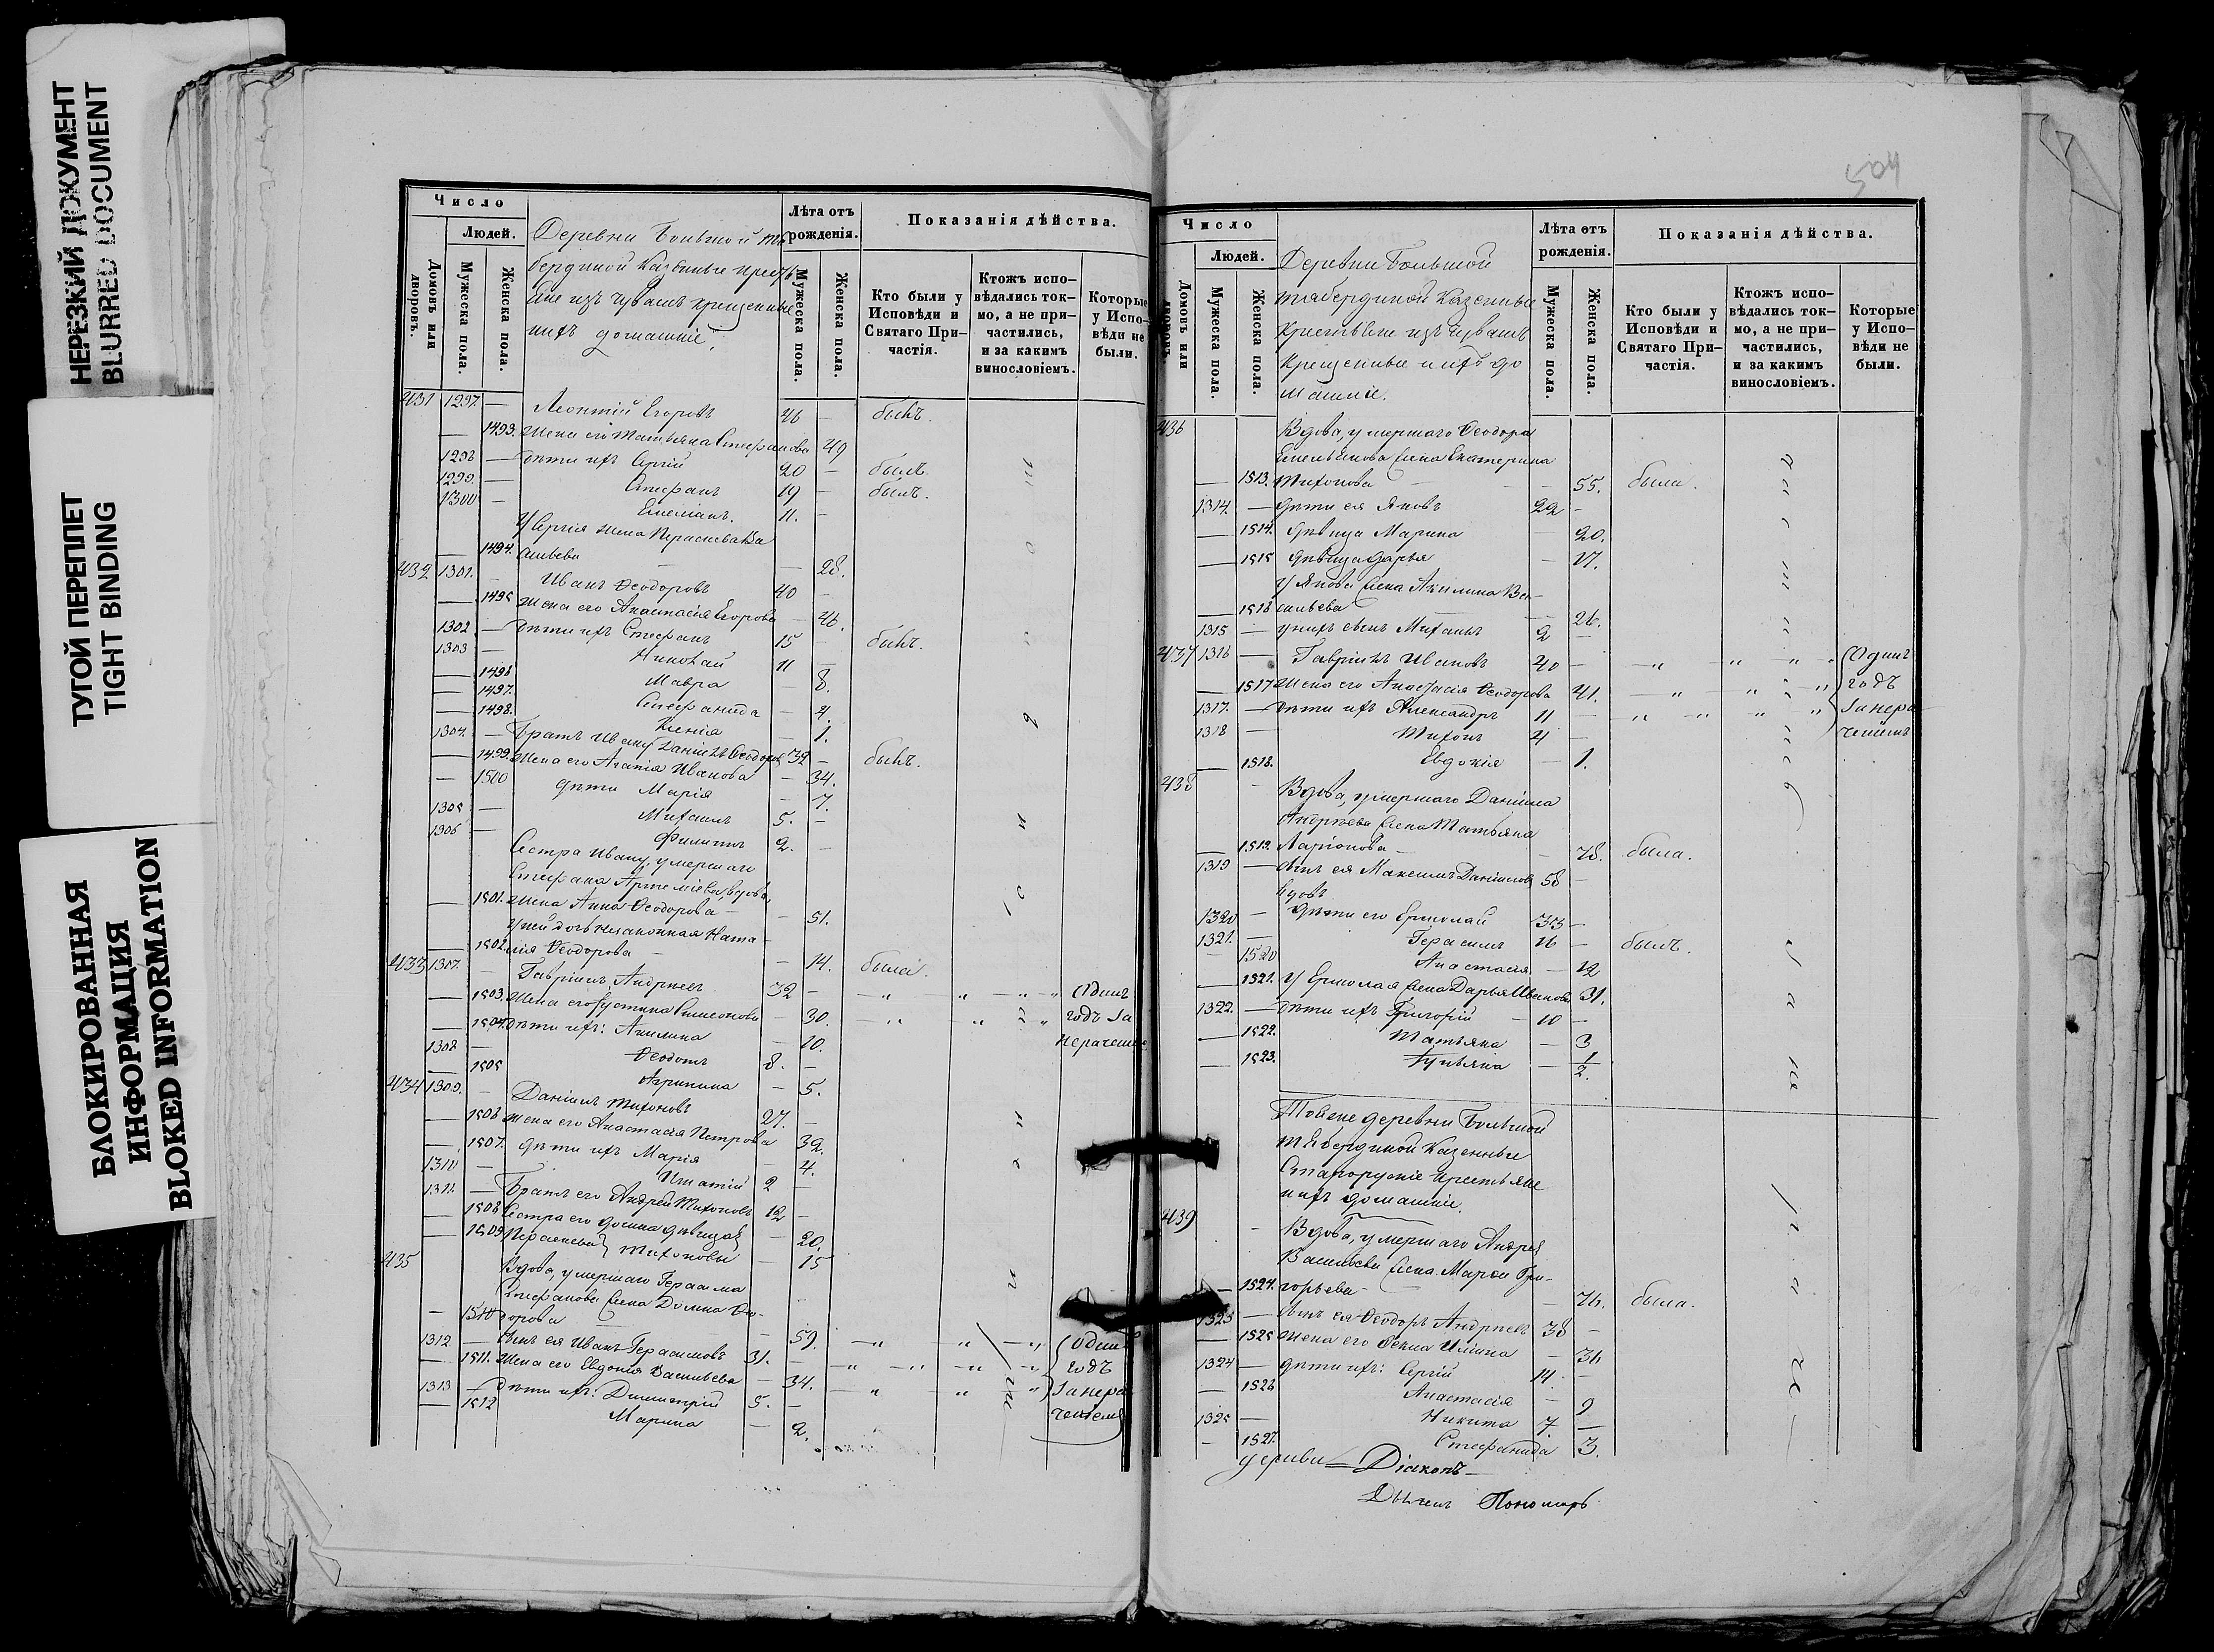 НЕРЕЗКИЙ ДОКУМЕНТ
BLURRED DOCUMENT
ТУГОЙ ПЕРЕПЛЕТ
TIGHT BINDING
БЛОКИРОВАННАЯ
ИНФОРМАЦИЯ
BLOKED INFORMATION
Число
Людей.
Домовъ или дворовъ.
Мужеска пола.
Женска пола.
Деревни Большой Тя
бердиной Казенные крестья
не изъ Чувашъ крещенные
ихъ домашніе.
Лѣта отъ рожденія.
Мужеска пола.
Женска пола.
Показанія дѣйства.
Кто были у Исповѣди и Святаго При-частія.
Ктожъ испо-вѣдались ток-мо, а не при-частились, и за какимъ винословіемъ.
Которые у Испо-вѣди не были.
431 1297. — Леонтій Егоровъ 46 — былъ.
— 1493. Жена его Татьяна Стефанова 49
1298 — Дѣти ихъ Сергій 20 — былъ.
1299. — Стефанъ 19 — былъ.
1300 — Емеліанъ. 11. —
У Сергія жена Параскева Ва
— 1494. сильева — 28.
432 1301. — Иванъ Ѳеодоровъ 40 —
— 1495 Жена его Анастасія Егорова — 46.
1302 — Дѣти ихъ Стефанъ 15 — былъ.
1303 — Николай 11
— 1496 Мавра — 8.
— 1497. Стефанида — 4.
— 1498. Ксенія — 1.
1304. — Братъ Ивану Даніилъ Ѳеодоровъ 32 — былъ.
— 1499. Жена его Агапія Иванова — 34.
— 1500 Дѣти Марія — 7.
1305 — Михаилъ 5. —
1306 — Филиппъ 2. —
Сестра Ивану, умершаго
Стефана Артеміева, вдова,
— 1501. жена Анна Ѳеодорова — — 51.
У ней дочь незаконная Ната-
— 1502. лія Ѳеодорова — — 14. была.
433 1307. — Гавріилъ Андреевъ 32 — Одинъ
— 1503. Жена его Іустина Симеонова — 30. годъ за
— 1504. Дѣти ихъ: Акилина — 10. нерачені
1308 — Ѳеодотъ 8. —
— 1505 Агрипина — 5.
434 1309. — Даніилъ Тихоновъ 27. —
— 1506 Жена его Анастасія Петрова 32.
— 1507. Дѣти ихъ Марія — 4.
1310 — Игнатій 2
1311. — Братъ его Андрей Тихоновъ 12 —
— 1508 Сестра его Домна дѣвица — 20.
— 1509 Параскева Тихоновы — 15
435 Вдова, умершаго Герасима
Стефанова жена Домна Ѳео-
— 1510 дорова — 59.
1312 — Сынъ ея Иванъ Герасимовъ 31. — Одинъ
— 1511. Жена его Евдокія Васильева — 34. годъ
1313 — Дѣти ихъ: Димитрій 5. — за нера
— 1512 Марина — 2. ченіемъ
504
Число
Людей.
Домовъ или дворовъ.
Мужеска пола.
Женска пола.
Деревни Большой
тябердиной Казенные
Крестьяне изъ Чувашъ
Крещенные и ихъ до
машніе.
Лѣта отъ рожденія.
Мужеска пола.
Женска пола.
Показанія дѣйства.
Кто были у Исповѣди и Святаго При-частія.
Ктожъ испо-вѣдались ток-мо, а не при-частились, и за какимъ винословіемъ.
Которые у Испо-вѣди не были.
436 Вдова, умершаго Ѳеодора
Емельянова жена Екатерина
— 1513. Тихонова — — 55. была.
1314. — Дѣти ея Яковъ 22 —
— 1514. Дѣвица Марина — 20.
— 1515 Дѣвица Дарья — 17.
У Якова жена Акилина Ва-
— 1516 сильева — 26.
1315 — У нихъ сынъ Михаилъ 2 —
437 1316 — Гавріилъ Ивановъ 40 — Одинъ
— 1517 Жена его Анастасія Ѳеодорова 41. годъ
1317. — Дѣти ихъ Александръ 11 — за нера
1318 — Тихонъ 4 — ченіемъ
— 1518. Евдокія — 1.
438 Вдова, умершаго Даніила
Андреева жена Татьяна
— 1519. Ларіонова — — 78. была.
1319 — Сынъ ея Максимъ Даніиловъ 58 —
вдовъ
1320 — Дѣти его Ермолай 33 —
1321. — Герасимъ 16 — былъ.
— 1520 Анастасія — 12
— 1521. У Ермолая жена Дарья Иванова 31.
1322. — Дѣти ихъ Григорій — 10 —
— 1522. Татьяна — 3
— 1523. Ульяна — 1/2.
Тойже деревни Большой
тябердиной Казенные
Старорускіе Крестьяне
и ихъ домашніе.
439 Вдова, умершаго Андрея
Васильева жена Марѳа Гри-
— 1524. горьева — — 76. была.
1323 — Сынъ ея Ѳеодоръ Андреевъ 38 —
— 1525 Жена его Ѳекла Ильина — 36
1324 — Дѣти ихъ: Сергій 14. —
— 1526 Анастасія — 9
1325 — Никита 7. —
— 1527. Стефанида 3.
церкви Діаконъ
Пономарь